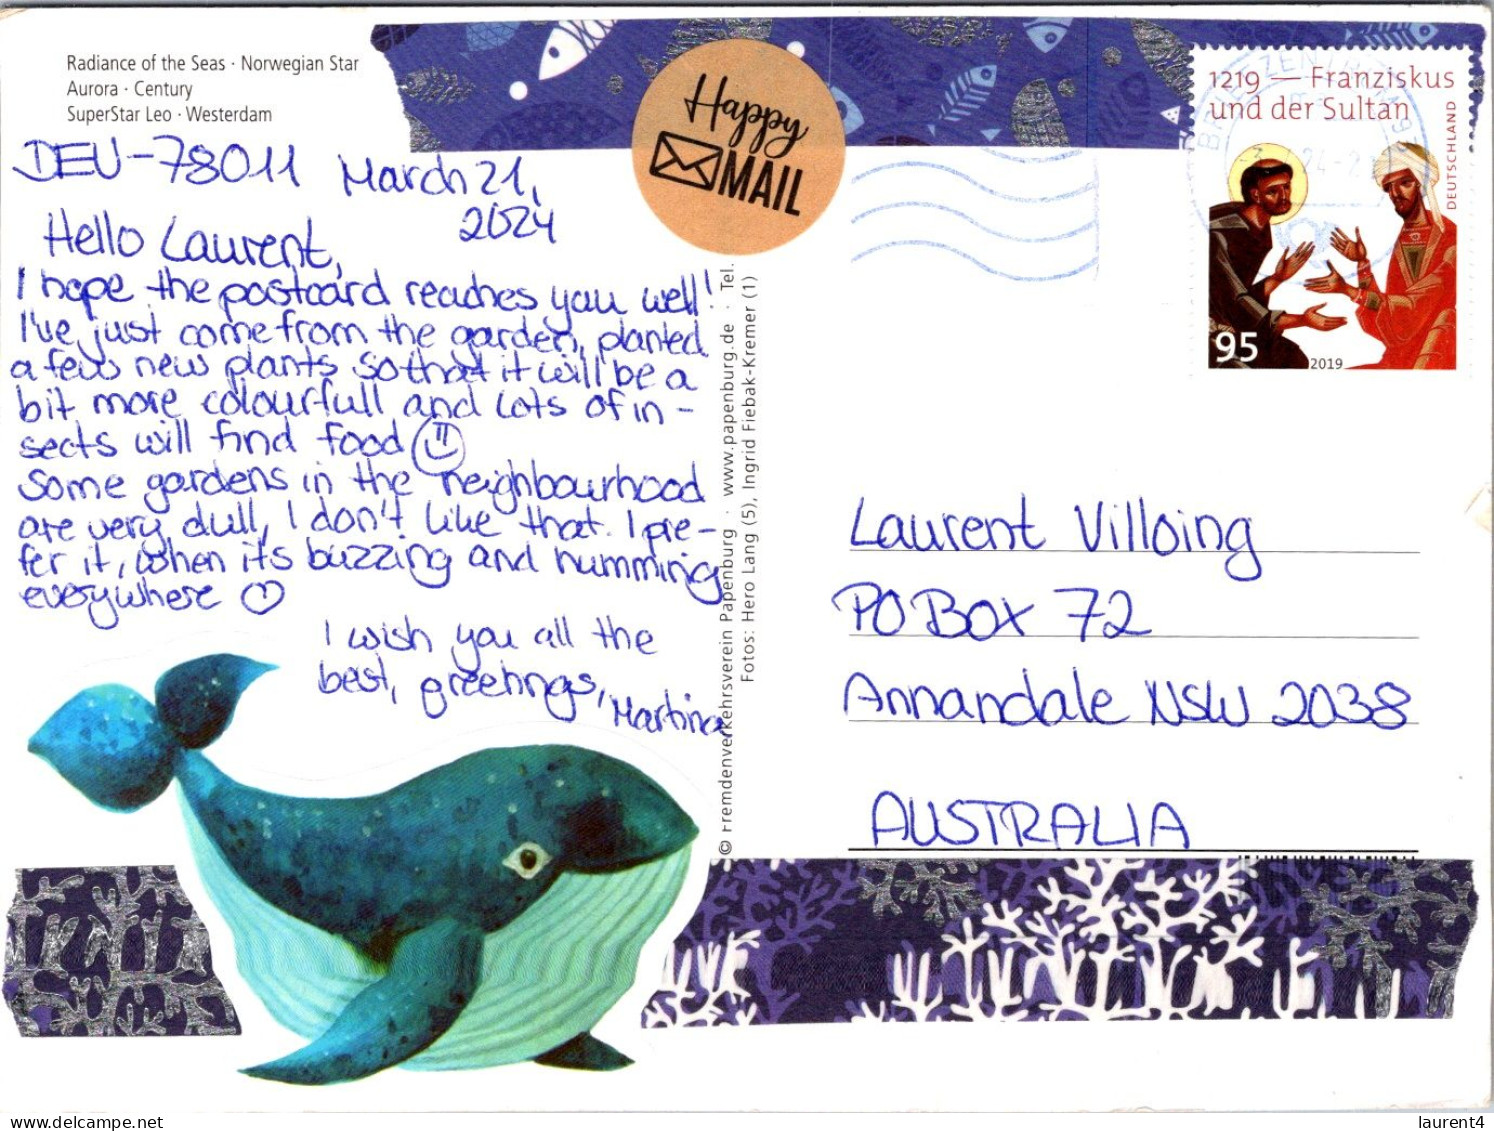 Radiance of the Seas · Norwegian Star
Aurora · Century
SuperStar Leo · Westerdam
Happy
MAIL
1219 — Franziskus
und der Sultan
DEUTSCHLAND
95
2019
DEU-78011 March 21,
2024
Hello Laurent,
I hope the postcard reaches you well!
I've just come from the garden, planted
a few new plants so that it will be a
bit more colourfull and lots of in-
sects will find food
Some gardens in the neighbourhood
are very dull, I don't like that. I pre-
fer it, when it's buzzing and humming
everywhere
I wish you all the
best, greetings,
Martina
© Fremdenverkehrsverein Papenburg · www.papenburg.de · Tel.
Fotos: Hero Lang (5), Ingrid Fiebak-Kremer (1)
Laurent Villoing
PO Box 72
Annandale NSW 2038
AUSTRALIA
delcampe.net
laurent4